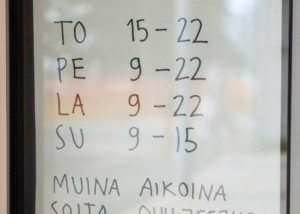 TO 15-22
PE 9-22
LA 9-22
SU 9-15
MUINA AIKOINA
SOITA